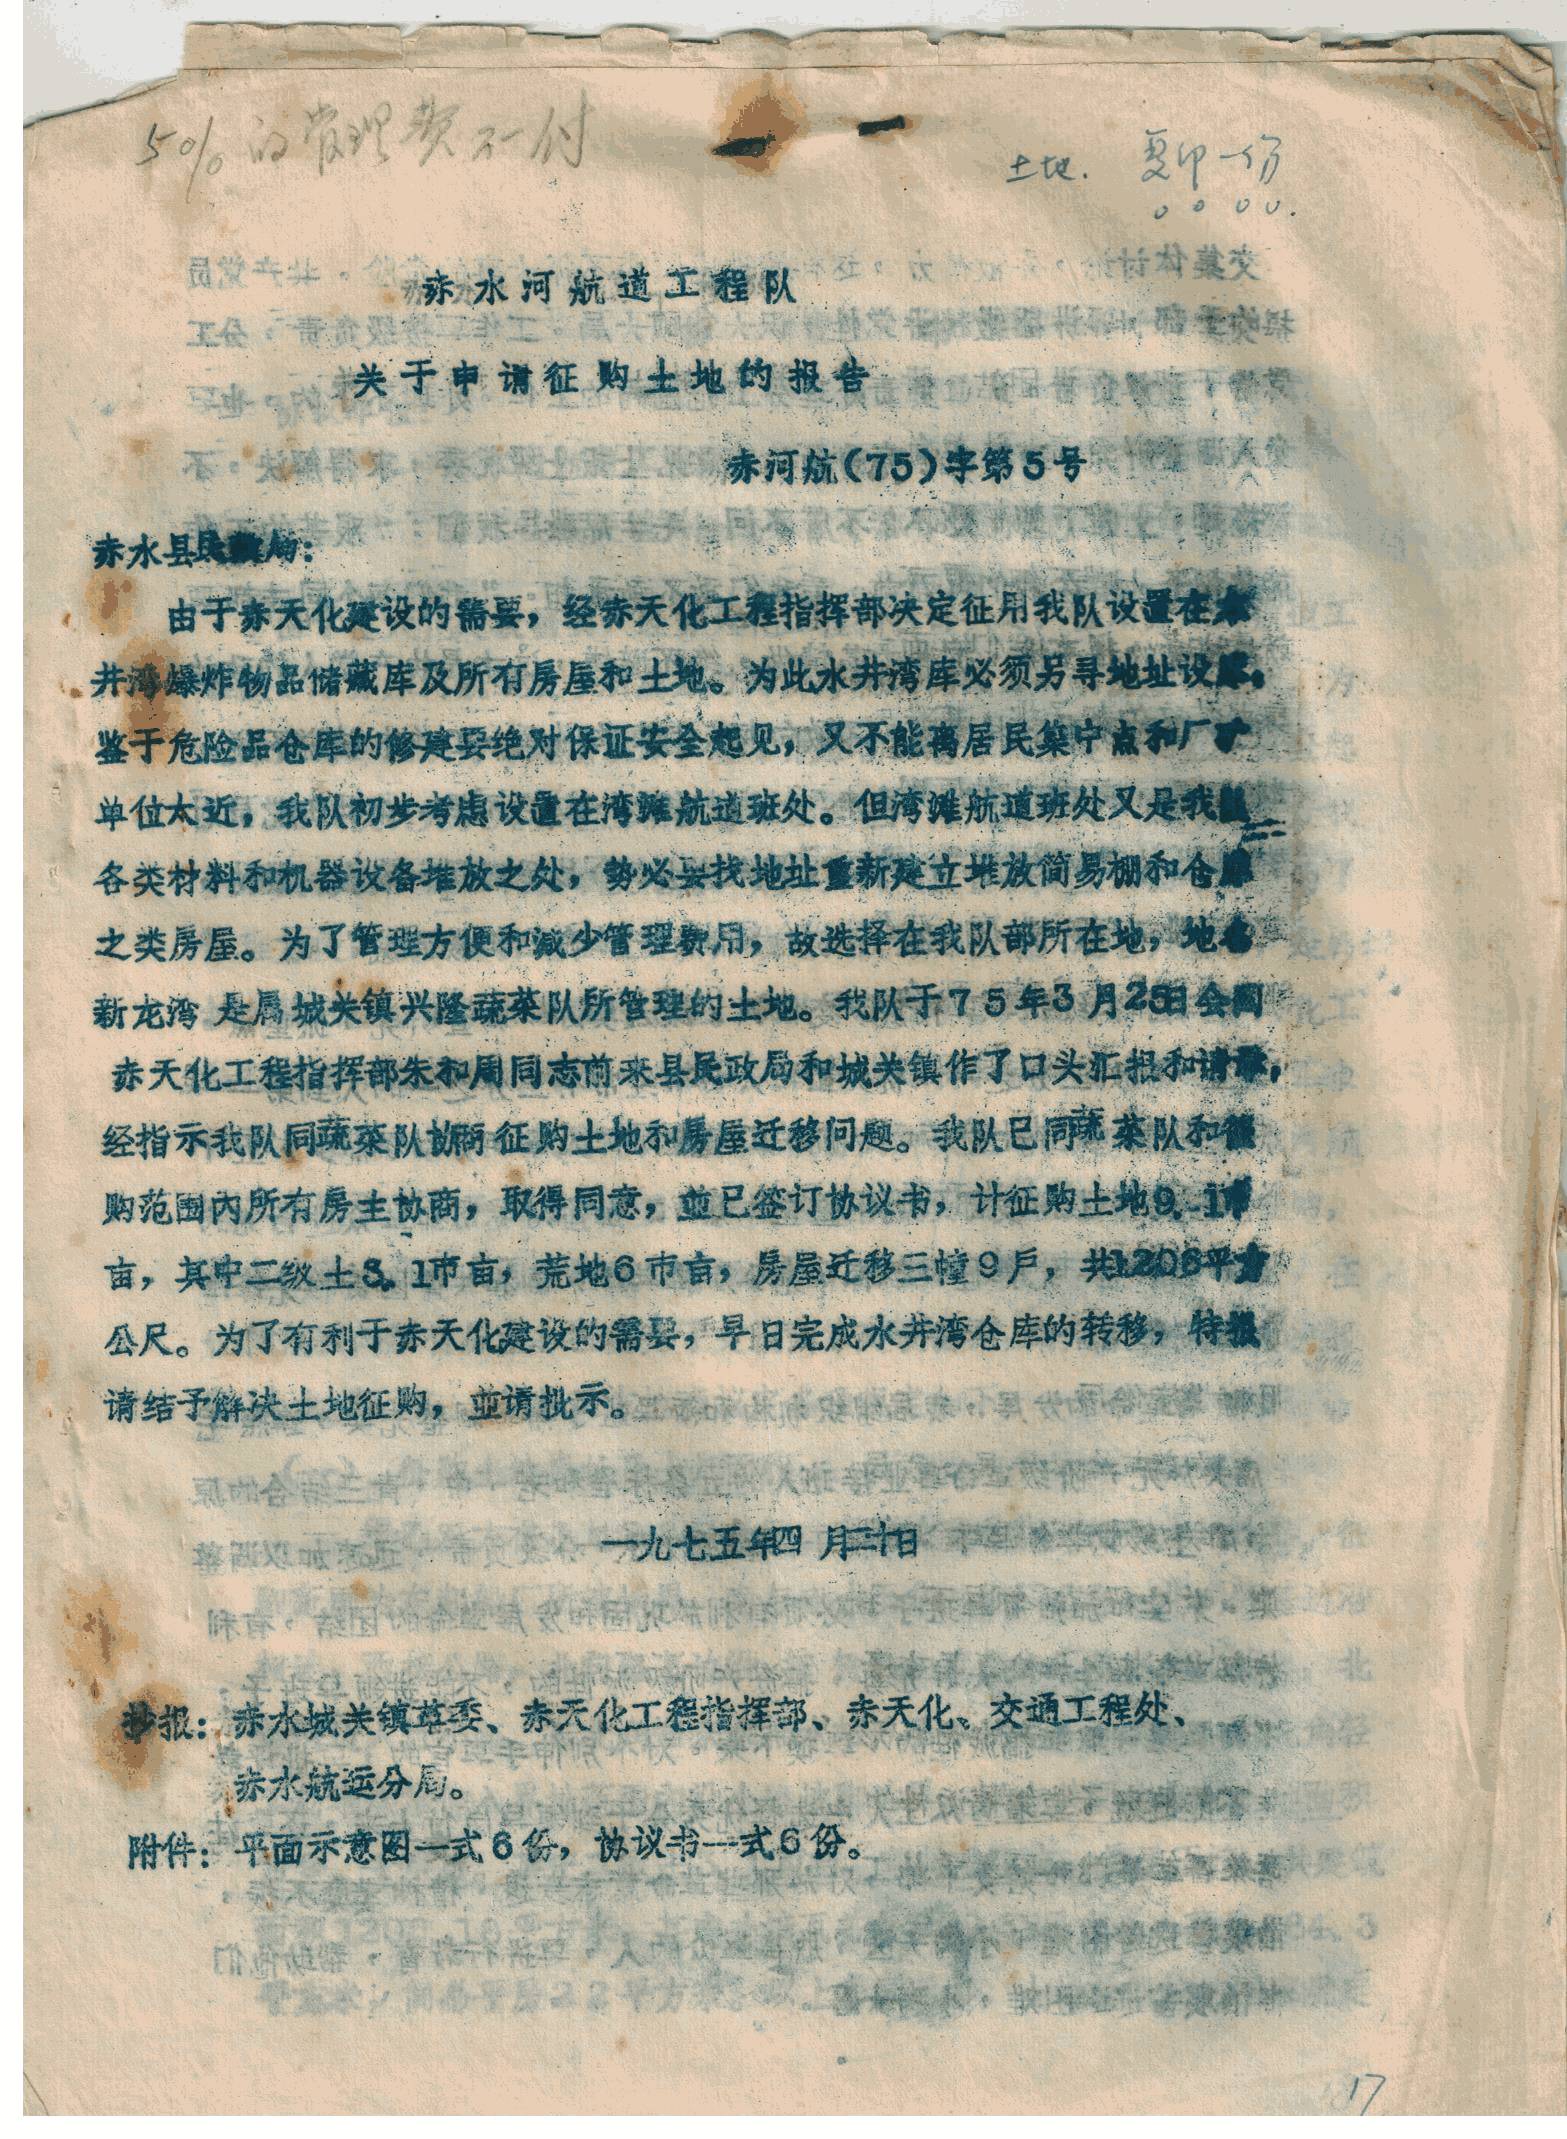 5%的管理费不付
土地. 复印一份
赤水河航道工程队
关于申请征购土地的报告
赤河航(75)字第5号
赤水县民政局:
由于赤天化建设的需要，经赤天化工程指挥部决定征用我队设置在水
井湾爆炸物品储藏库及所有房屋和土地。为此水井湾库必须另寻地址设库。
鉴于危险品仓库的修建要绝对保证安全起见，又不能离居民集中点和厂矿
单位太近，我队初步考虑设置在湾滩航道班处。但湾滩航道班处又是我队
各类材料和机器设备堆放之处，势必要找地址重新建立堆放简易棚和仓库
之类房屋。为了管理方便和减少管理费用，故选择在我队部所在地，地名
新龙湾 是属城关镇兴隆蔬菜队所管理的土地。我队于75年3月25日会同
赤天化工程指挥部朱和周同志前来县民政局和城关镇作了口头汇报和请示，
经指示我队同蔬菜队协商征购土地和房屋迁移问题。我队已同蔬菜队和征
购范围内所有房主协商，取得同意，並已签订协议书，计征购土地9.1市
亩，其中二级土3.1市亩，荒地6市亩，房屋迁移三幢9戶，共1206平方
公尺。为了有利于赤天化建设的需要，早日完成水井湾仓库的转移，特报
请结予解决土地征购，並请批示。
一九七五年四月二十日
抄报：赤水城关镇革委、赤天化工程指挥部、赤天化、交通工程处、
赤水航运分局。
附件：平面示意图一式6份，协议书一式6份。
17